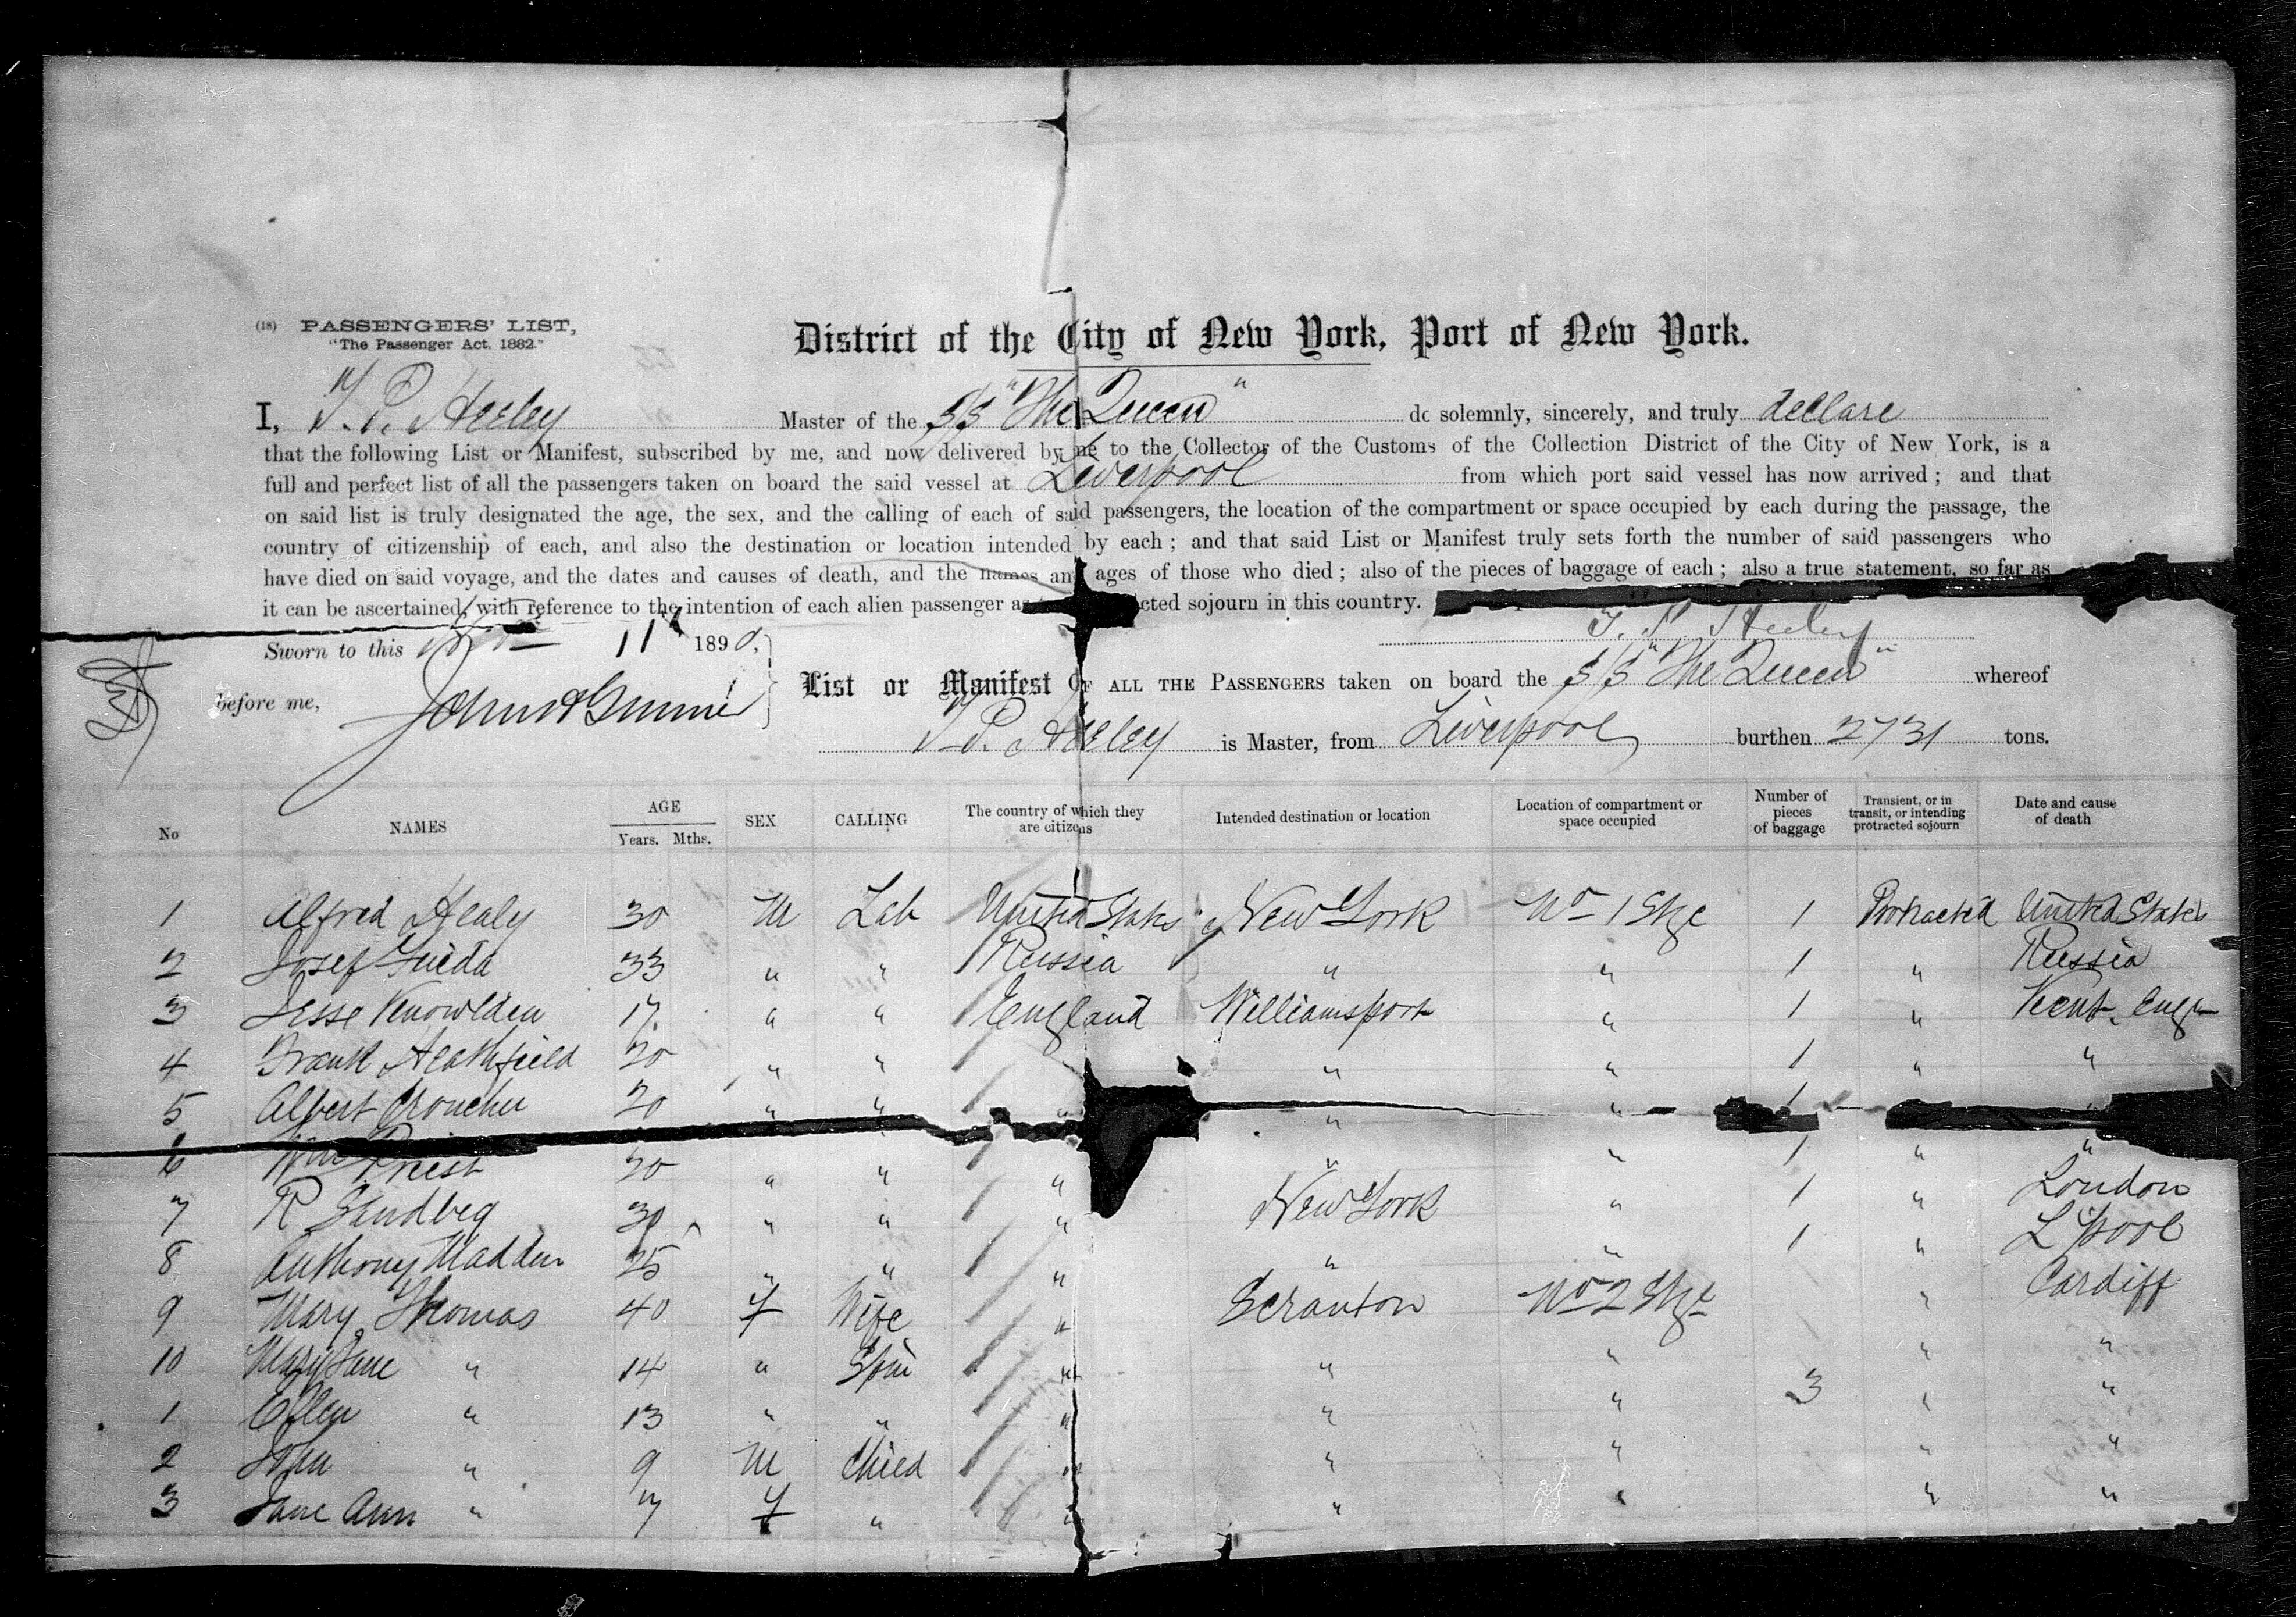 (18) PASSENGERS' LIST,
"The Passenger Act, 1882."
District of the City of New York, Port of New York.
I, T. P. Heeley Master of the S/S "The Queen" do solemnly, sincerely, and truly declare
that the following List or Manifest, subscribed by me, and now delivered by me to the Collector of the Customs of the Collection District of the City of New York, is a
full and perfect list of all the passengers taken on board the said vessel at Liverpool from which port said vessel has now arrived; and that
on said list is truly designated the age, the sex, and the calling of each of said passengers, the location of the compartment or space occupied by each during the passage, the
country of citizenship of each, and also the destination or location intended by each; and that said List or Manifest truly sets forth the number of said passengers who
have died on said voyage, and the dates and causes of death, and the names and ages of those who died; also of the pieces of baggage of each; also a true statement, so far as
it can be ascertained, with reference to the intention of each alien passenger as cted sojourn in this country.
T. P. Heeley
Sworn to this 11 1890,
before me,
List or Manifest OF ALL THE PASSENGERS taken on board the S/S "The Queen" whereof
T. P. Heeley is Master, from Liverpool burthen 2731 tons.
No NAMES AGE Years. Mths. SEX CALLING The country of which they are citizens Intended destination or location Location of compartment or space occupied Number of pieces of baggage Transient, or in transit, or intending protracted sojourn Date and cause of death
1 Alfred Healy 30 M Lab United States New York No 1 Stge 1 Protracted United States
2 Josef 33 " " Russia " " 1 " Russia
3 Jesse Knowlden 17 " " England Williamsport " 1 " Kent, Eng
4 Frank Heathfield 20 " " " " 1 " "
5 Albert Croucher 20 " " " " " 1 "
6 Wm Priest 20 " " " " " 1 " "
7 R Sandbeg 30 " " " New York " 1 " London
8 Anthony Madden 25 " " " " " 1 " L'pool
9 Mary Thomas 40 f Wife " Scranton No 2 Stge " Cardiff
10 Mary Jane " 14 " Spin " " " " "
1 Ellen " 13 " " " " " 3 " "
2 John " 9 M Child " " " " "
3 Jane Ann " 7 f " " " " " "